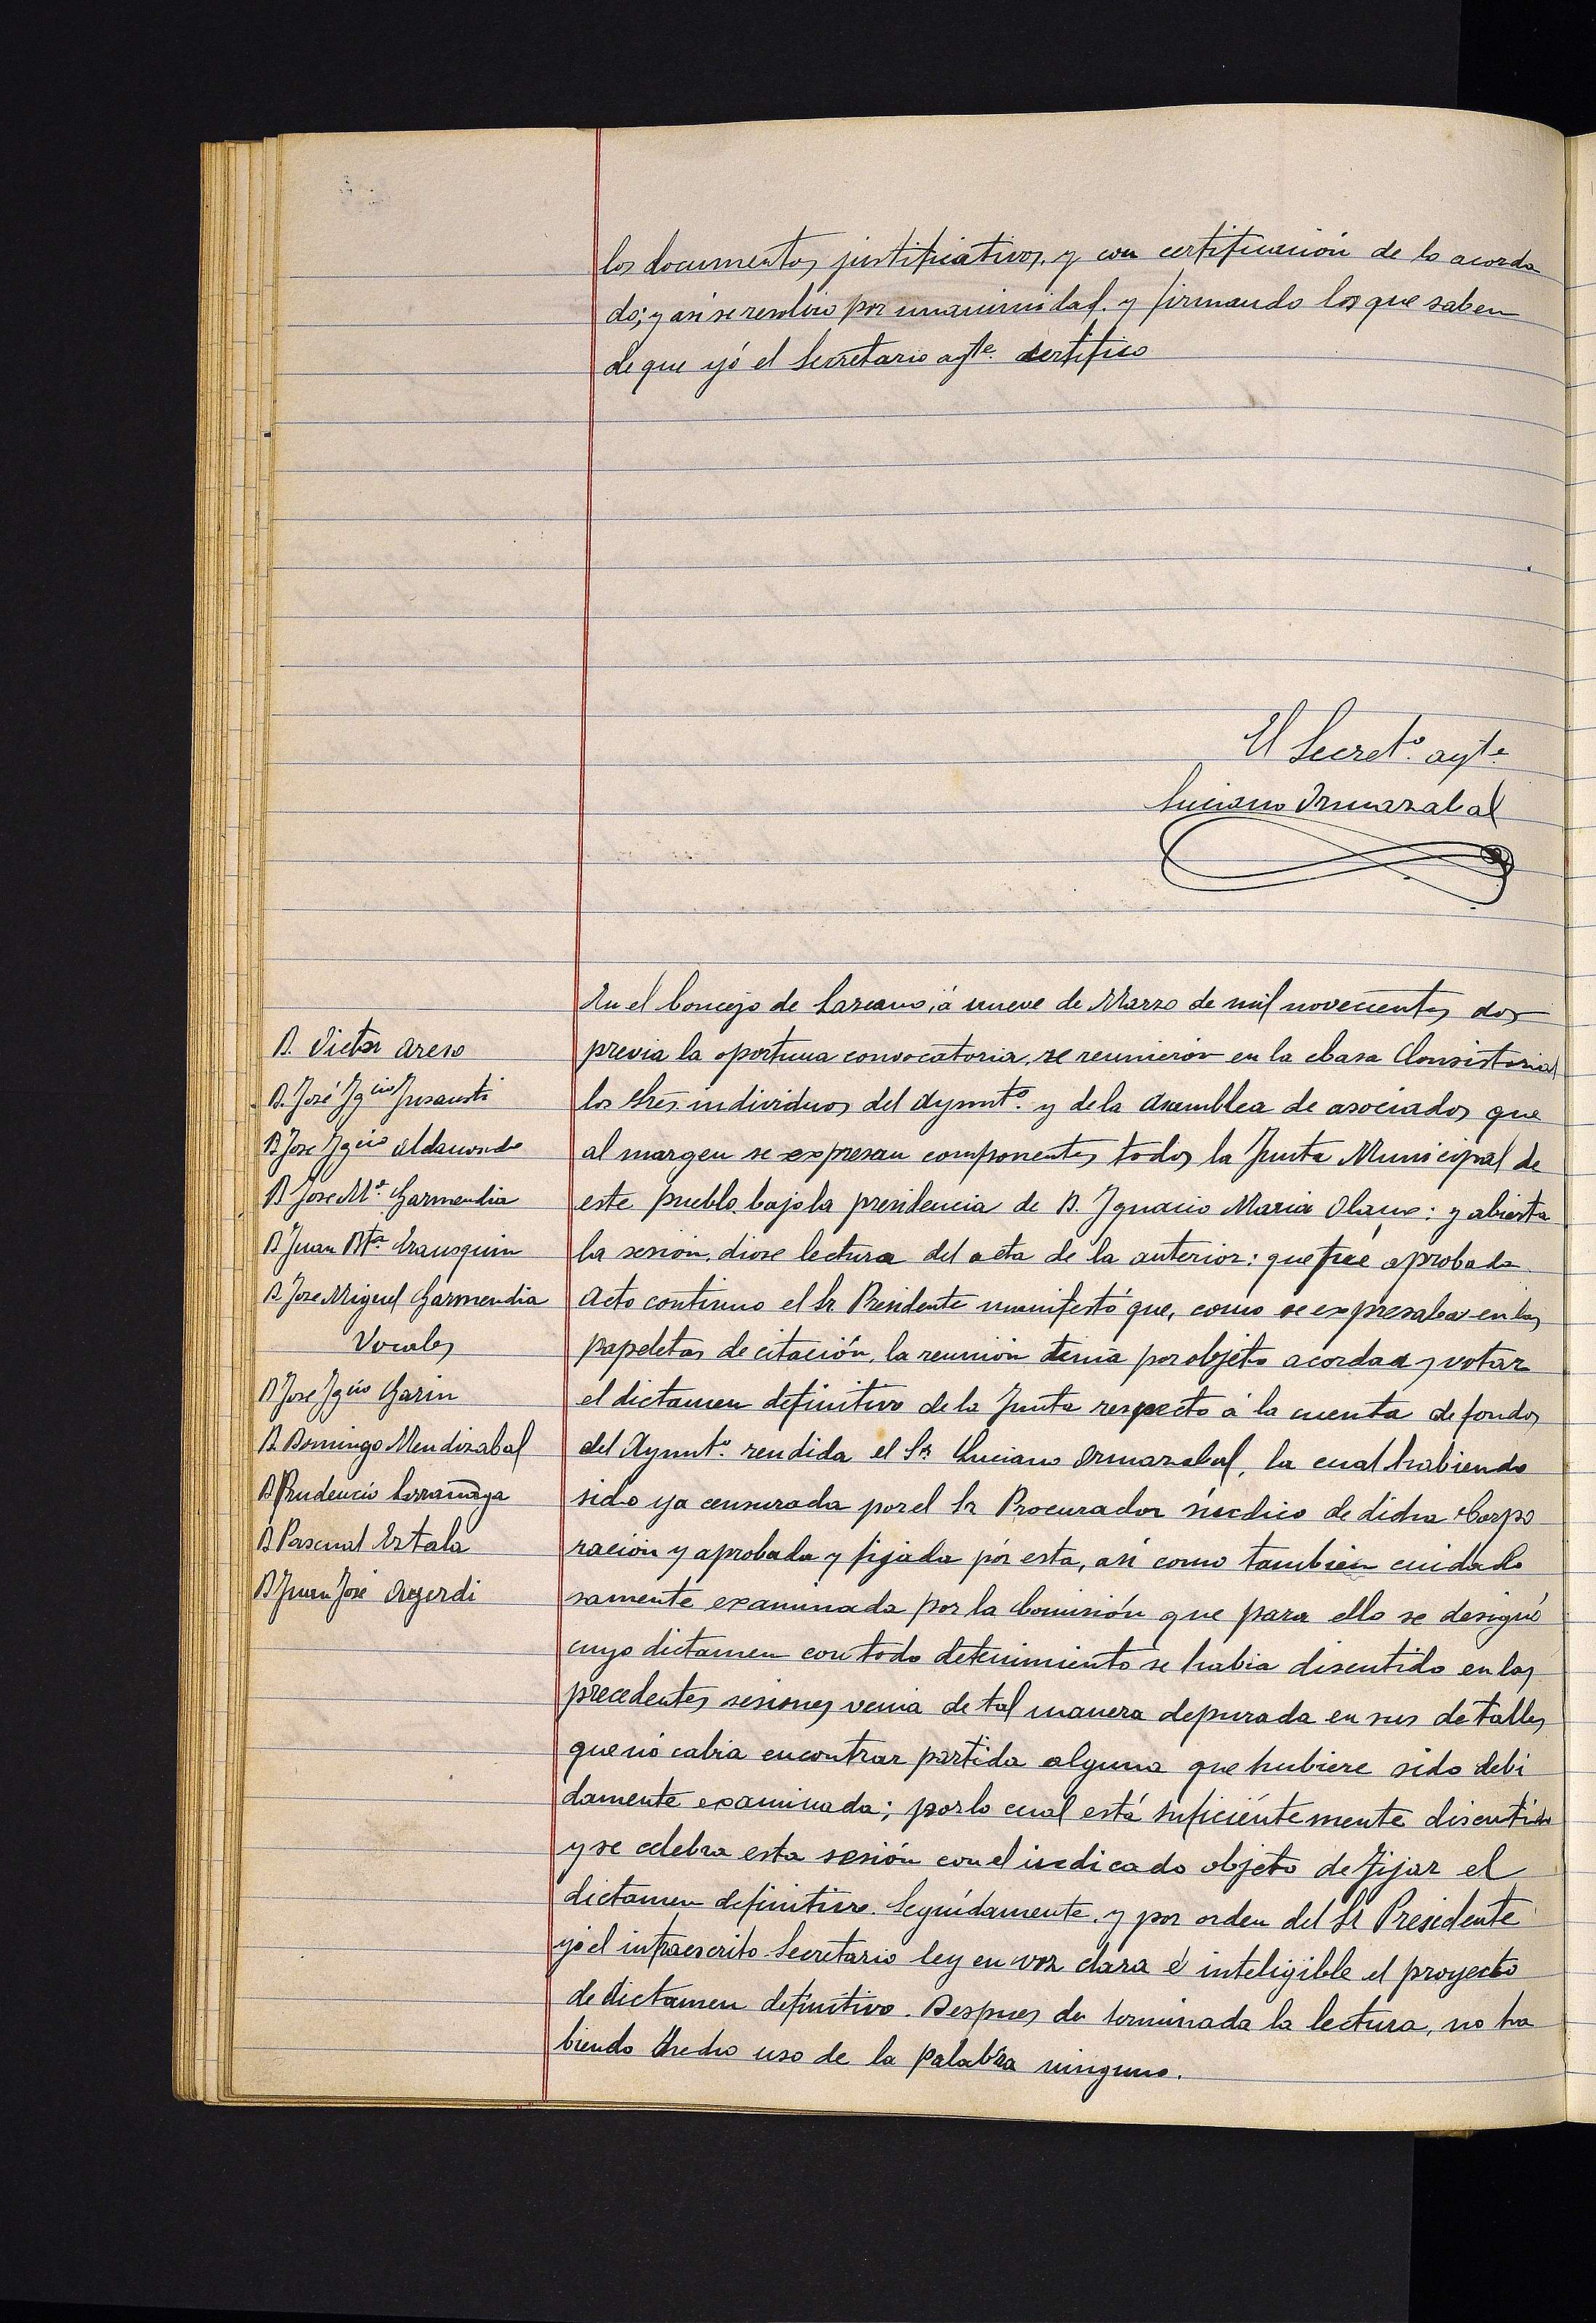 los documentos justificativos, y con certificación de lo acorda
do; y asi se resolvio por unanimidad. y firmando los que saben
de que yó el Secretario aytte. certifico
El Secret.º aytte.
Luciano Ormazabal
En el Concejo de Lazcano, á nueve de Marzo de mil novecientos dos
previa la oportuna convocatoria, se reunieron en la Casa Consistorial
los Sres. individuos del Aymnt.º y de la Asamblea de asociados que
al margen se expresan componentes todos la Junta Municipal de
este pueblo bajo la presidencia de D. Ignacio Maria Olano: y abierta
la sesion, diose lectura del acta de la anterior: que fué aprobada.
Acto continuo el Sr. Presidente manifestó que, como se expresaba en las
papeletas de citación, la reunión tenia por objeto acordar y votar
el dictamen definitivo de la Junta respecto á la cuenta de fondos
del Aymnt.º rendida el Sr. Luciano Ormazabal, la cual habiendo
sido ya censurada por el Sr Procurador sindico de dicha Corpo
ración y aprobada y fijada pór esta, asi como tambien cuidado
samente examinada por la Comisión que para ello se designó
cuyo dictamen con todo detenimiento se habia discutido en las
precedentes sesiones venia de tal manera depurada en sus detalles
que nó cabia encontrar partida alguna que hubiere sido debi
damente examinada; por lo cual está suficientemente discutido
y se celebra esta sesión con el indicado objeto de fijar el
dictamen definitivo. Seguidamente y por orden del Sr Presidente
yó el infraescrito Secretario ley en voz clara é inteligible el proyecto
de dictamen definitivo. Despues de terminada la lectura, no ha
biendo hecho uso de la palabra ninguno.
D. Victor Areso
D. José Ygcio Jusausti
D Jose Ygcio Aldasoro
D Jose M.ª Garmendia
D Juan Bta. Irausquin
D. Jose Miguel Garmendia
Vocales
D Jose Ygcio Garin
D. Domingo Mendizabal
D Prudencio Larrañaga
D Pascual Estala
D Juan José Auzerdi